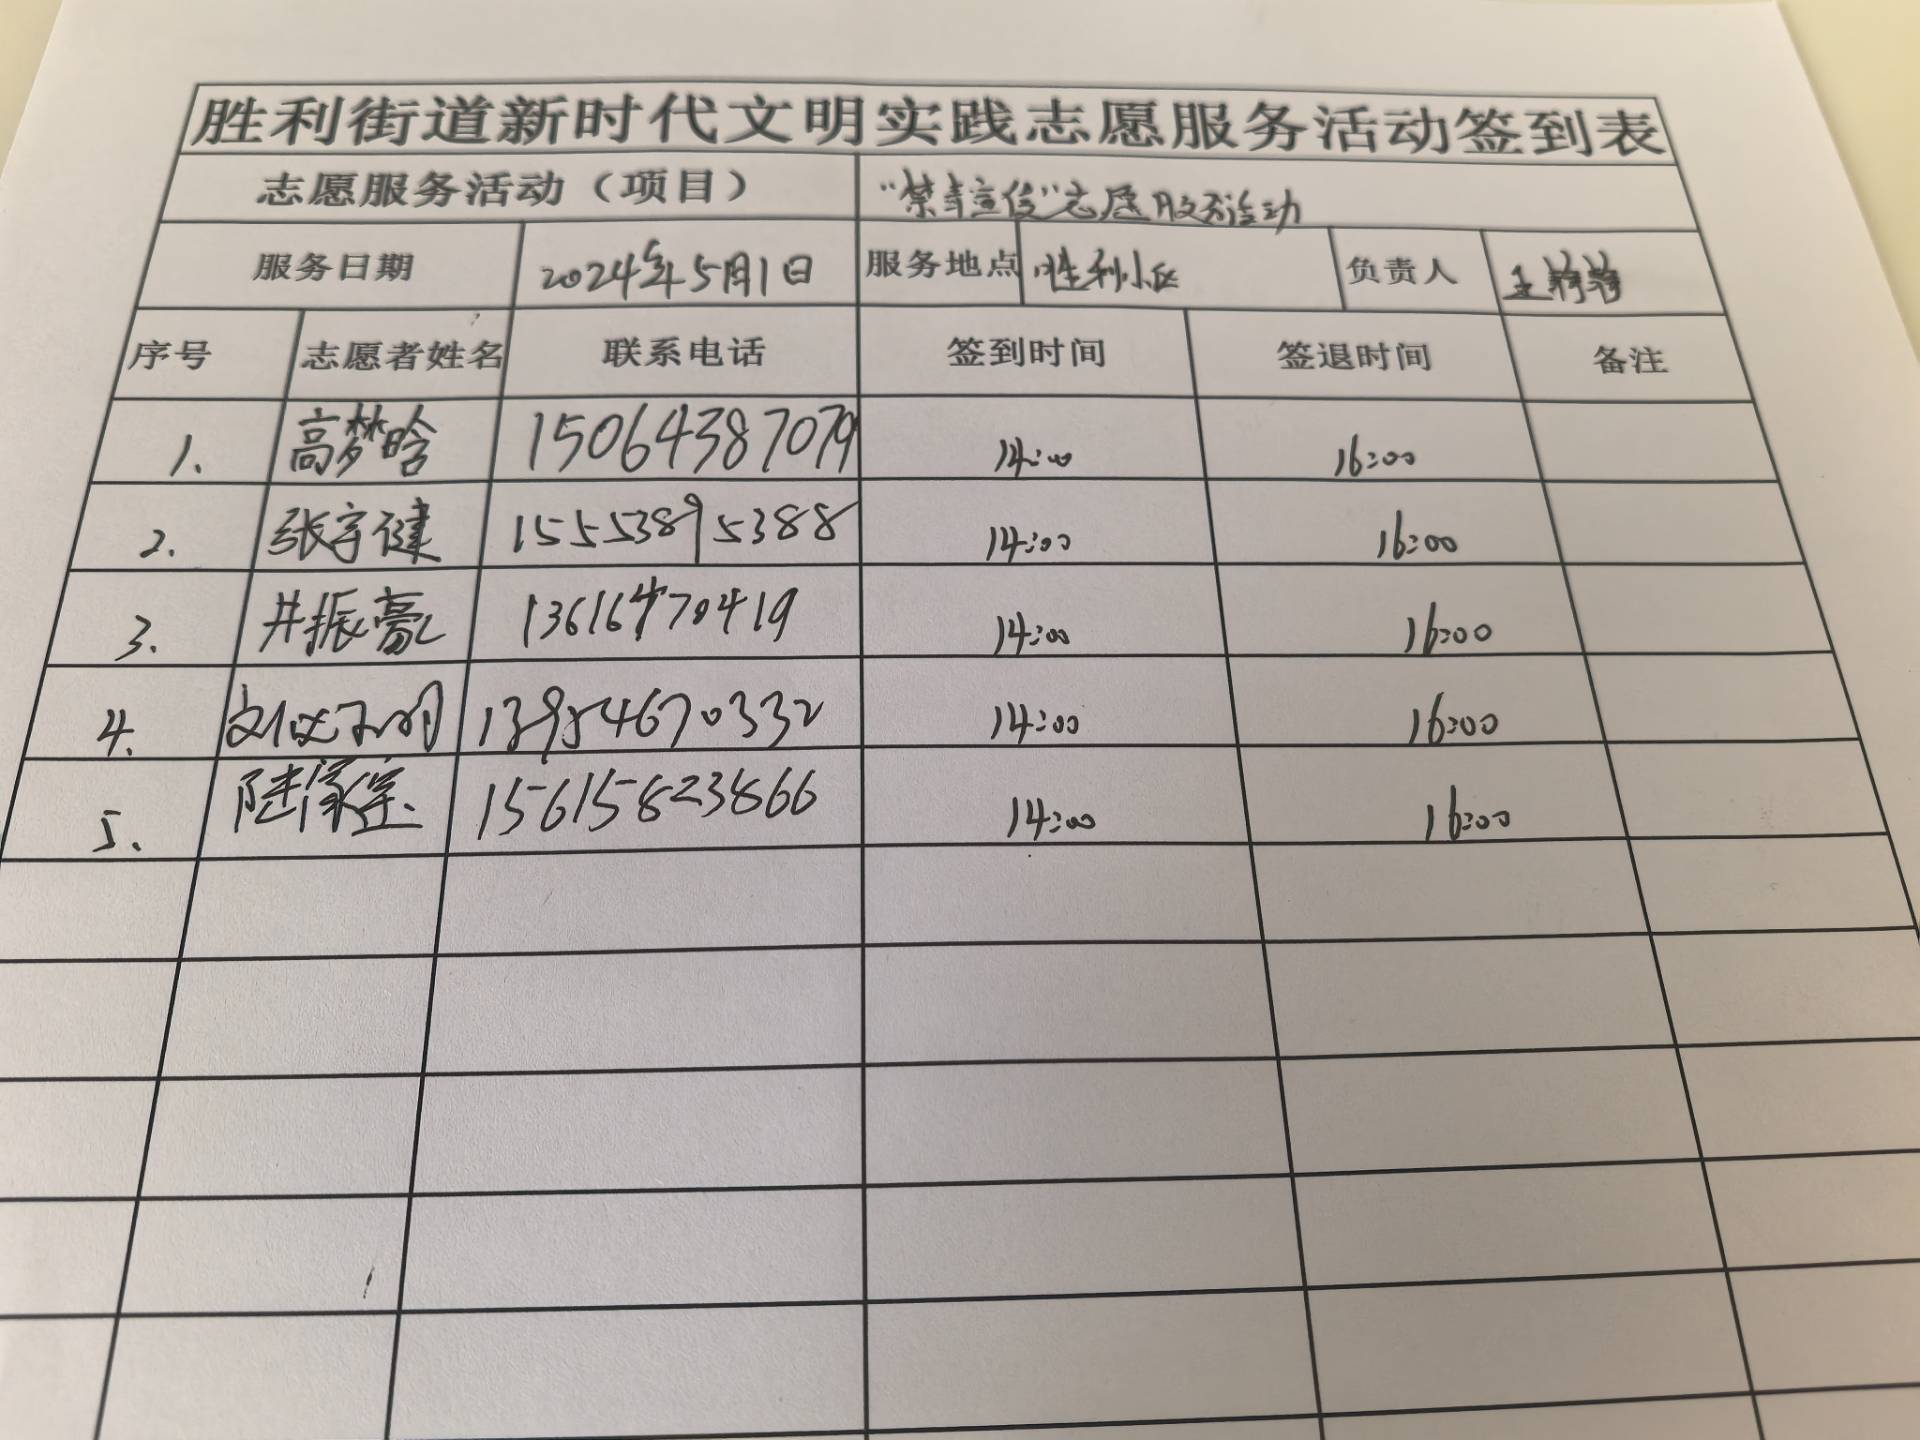 胜利街道新时代文明实践志愿服务活动签到表
志愿服务活动（项目） “禁毒宣传”志愿服务活动
服务日期 2024年5月1日 服务地点 胜利小区 负责人 王
序号 志愿者姓名 联系电话 签到时间 签退时间 备注
1. 高梦晗 15064387079 14:00 16:00
2. 张宇健 15553895388 14:00 16:00
3. 井振豪 13616470419 14:00 16:00
4. 13954670332 14:00 16:00
5. 陆家宝 15615823866 14:00 16:00